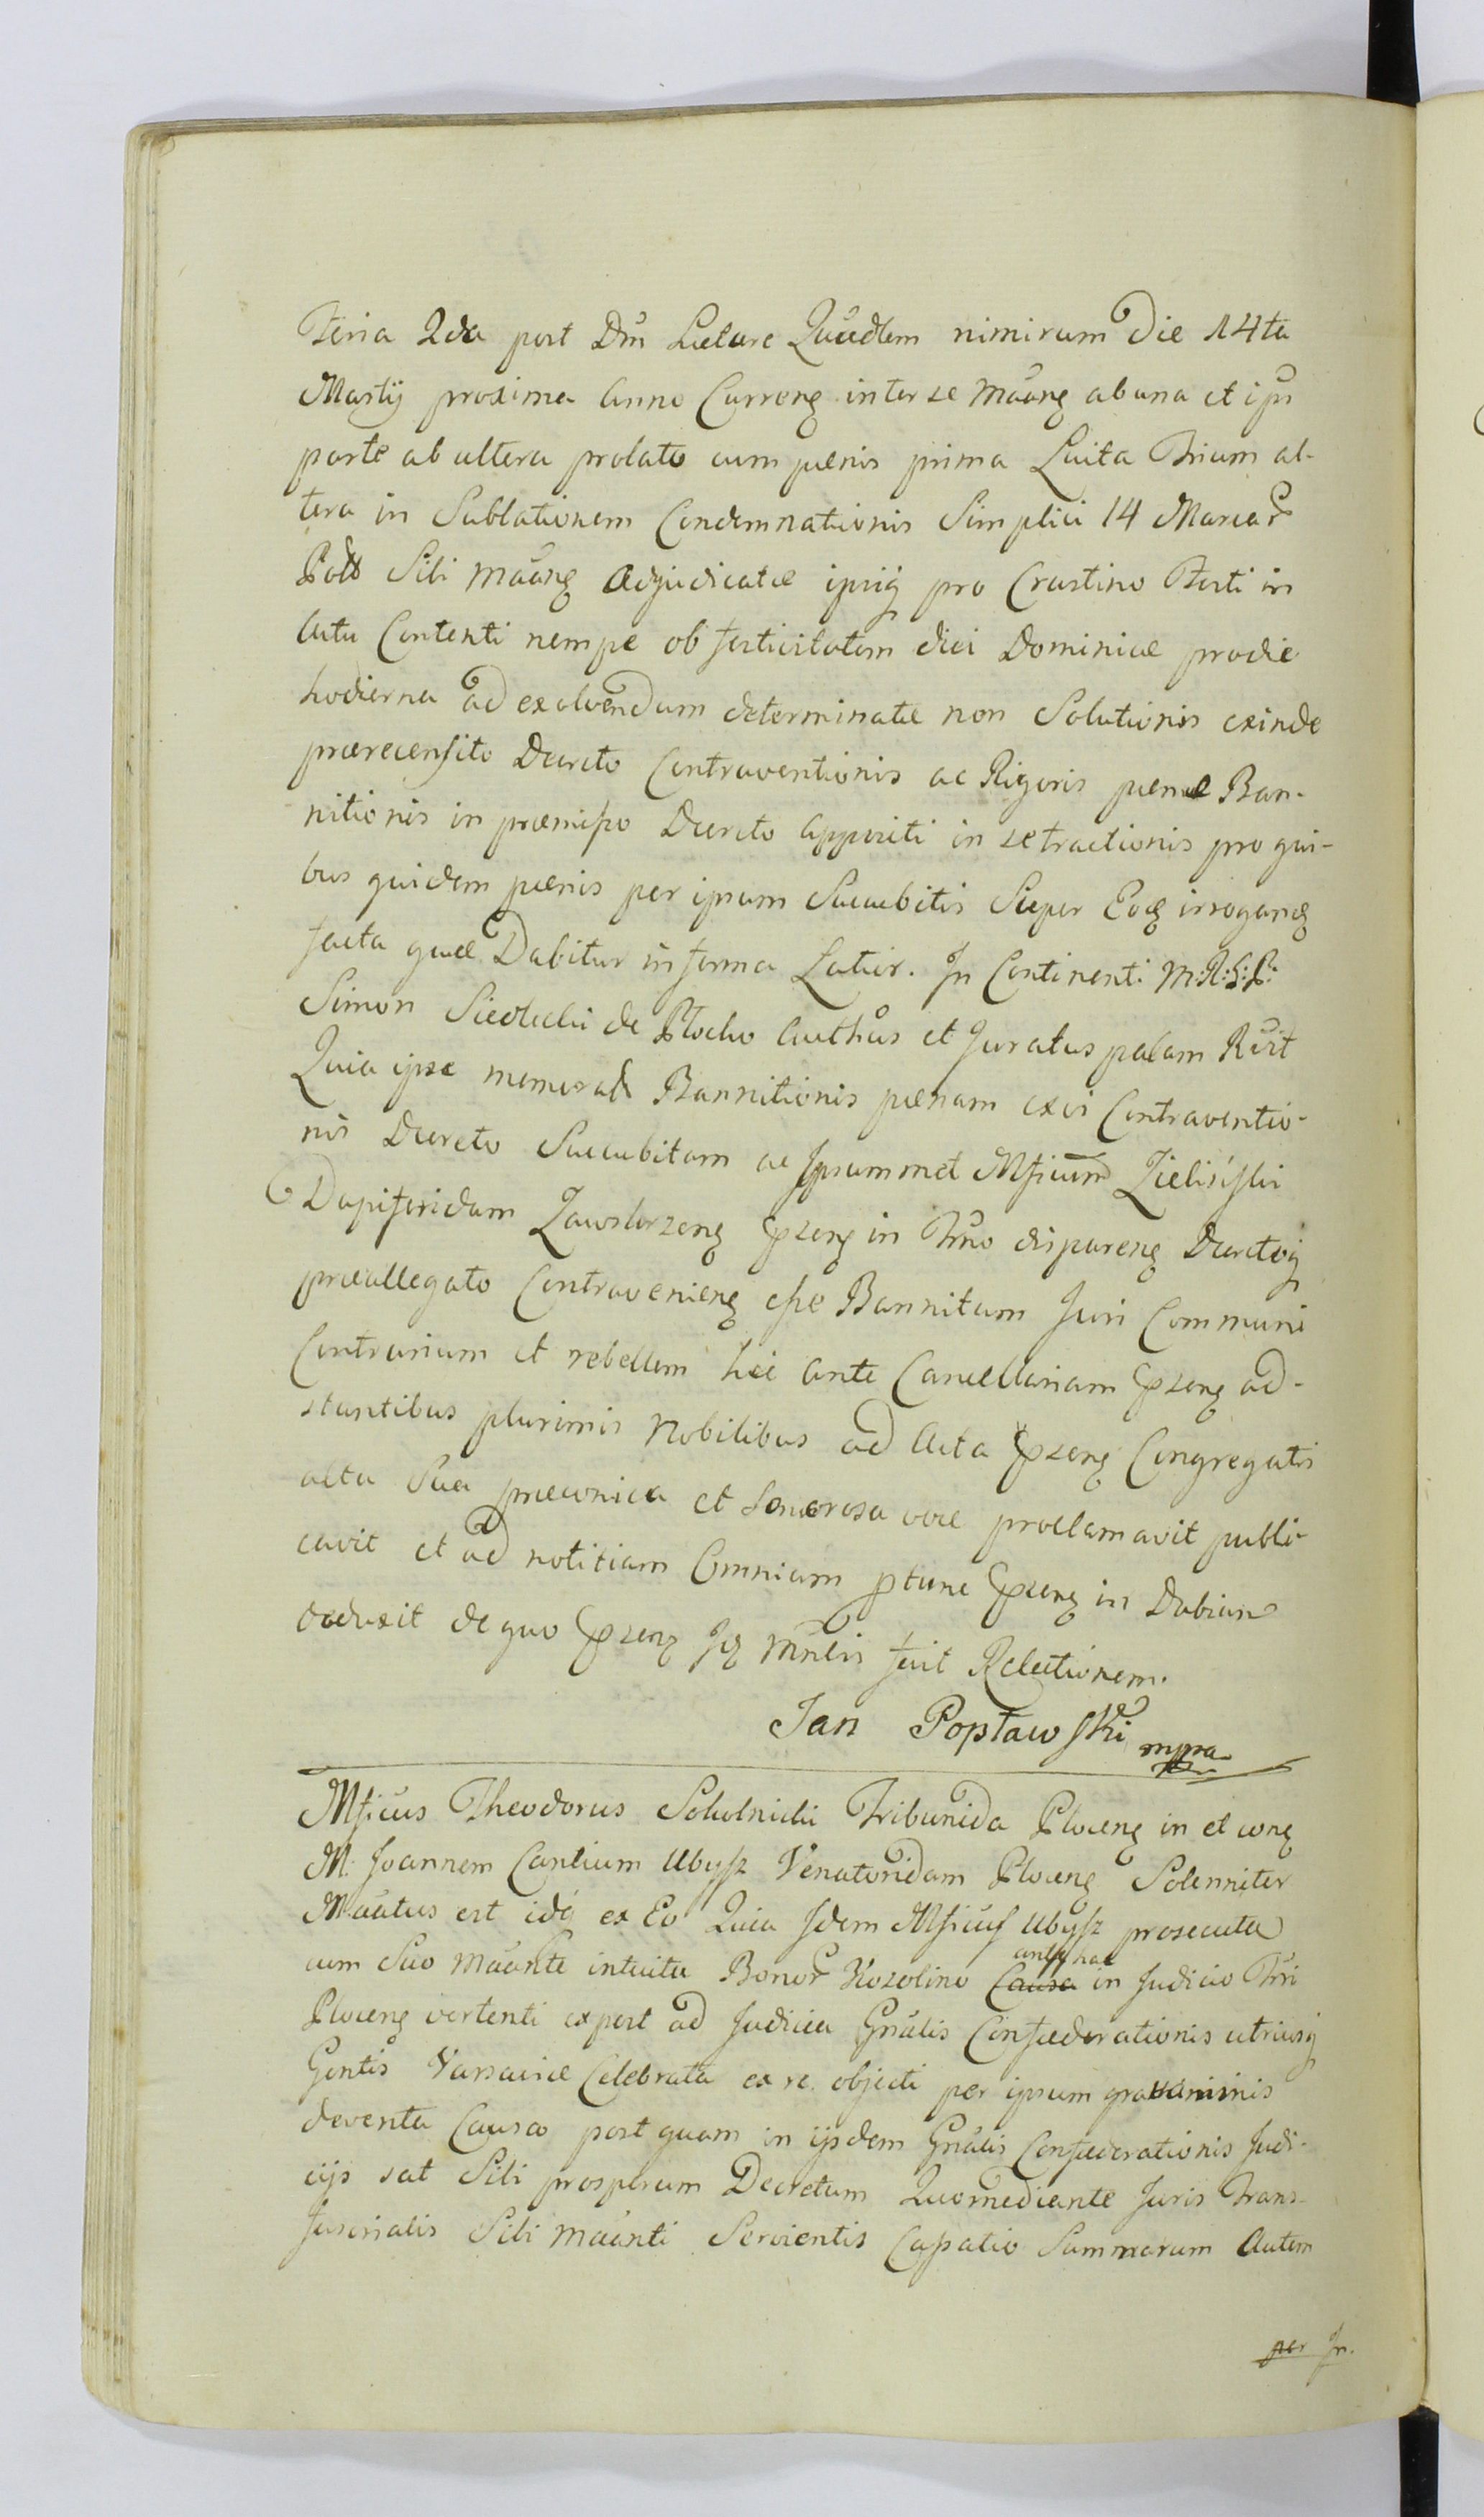 Feria 2da post Dm̄ Lætare Quadlem nimirum Die 14ta
Martij proxima Anno Curreng inter se Māāng ab una et ipu
parte ab altera prolato cum pænis prima Luita Trium al-
tera in Sublationem Condemnationis Simplici 14 Marcar
Poll Sibi māāng Adjudicatæ ipsiq pro Crastino Festi in
Actu Contenti nempe ob festivitatem diei Dominicæ pro die
hodierna ad exolvendum determinatæ non Solutionis exinde
prærecensito Decreto Contraventionis ac Rigoris pænæ Ban-
nitionis in præmisso Decreto Appositi in se tractionis pro qui-
bus quidem pænis per ipsum Succubitis Super Eoq irrogang
facta quæ Dabitur in forma Latior. In Continenti M:R:S:R:
Simon Siedlecki de Płocko Authūs et Juratus palam R̄vit
Quia ipse memorat Bannitionis pænam ex vi Contraventio-
nis Decreto Succubitam ac Ipsummet Mficum Zieliński
Dapiferidam Zawskrzeng Pszeng in Trno dispareng Decretoq
præallegato Contravenieng esse Bannitum Juri Communi
Contrarium et rebellem hic ante Cancellariam Pszeng ad-
stantibus plurimis Nobilibus ad Acta Pszeng Congregatis
alta Sua præconica et Sonorosa voce proclamavit publi-
cavit et ad notitiam Omnium ptune Pszeng in Dubium
deduxit de quo Pszeng Jq Mnlis fuit Relationem.
Jan Popławski mppa
Mficus Theodorus Sokolnicki Tribunida Ploceng in et cong
M. Joannem Cantium Ubysz Venatoridam Ploceng Solenniter
Māātus est idq ex Eo Quia Idem Mficus Ubysz prosecuta
cum Suo māānte intuitu Bonor Kozolino Causa in Judicio Trri
Ploceng vertenti expost ad Judicia Gn̄alis Confæderationis utriusq
Gentis Varsaviæ Celebrata ex re objecti per ipsum gravaminis
deventa Causa post quam in ijsdem Gn̄alis Confæderationis Judi-
cijs sat Sibi prosperum Decretum Quomediante Juris Trans-
fusorialis Sibi māānti Servientis Cassatio Summarum Autem
per In.